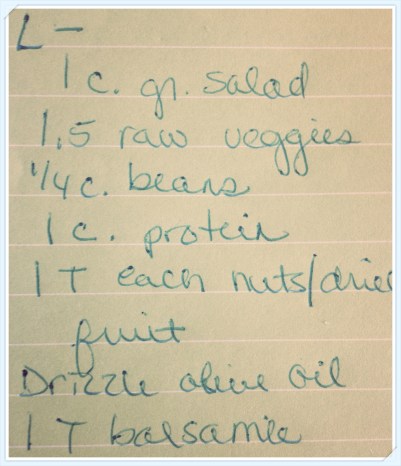 L -
1 c. gr. salad
1.5 raw veggies
1/4 c. beans
1 c. protein
1 T each nuts/dried
fruit
Drizzle olive oil
1 T balsamic